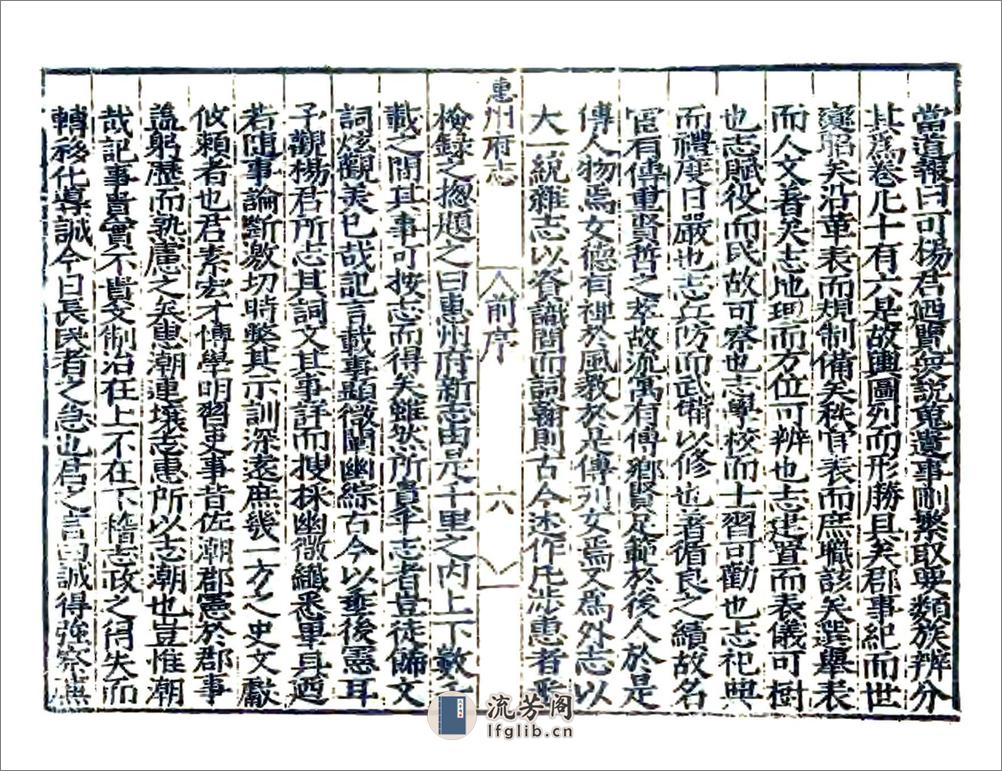 當道報曰可楊君迺覽羣說蒐遺事刪繁取要類族辨分
其爲卷凡十有六是故輿圖列而形勝具矣郡事紀而世
變昭矣沿革表而規制備矣秩官表而庶職該矣選舉表
而人文著矣志地理而方位可辨也志建置而表儀可樹
也志賦役而民故可察也志學校而士習可勸也志祀典
而禮度日嚴也志兵防而武備以修也著循良之績故名
宦有傳重賢哲之萃故流寓有傳鄉賢足範於後人於是
傳人物焉女德有裨於風教於是傳列女焉又爲外志以
大一統雜志以資識聞而詞翰則古今述作凡涉惠者采
惠州府志 前序 六
檢錄之揔題之曰惠州府新志由是千里之內上下數千
載之間其事可按志而得矣雖然所貴乎志者豈徒備文
詞炫觀美已哉記言載事顯微闡幽綜古今以垂後憲耳
予觀楊君所志其詞文其事詳而搜採幽微纖悉畢具迺
若隨事論斷激切時獘其示訓深遠庶幾一方之史文獻
攸賴者也君素宏才博學明習史事昔佐潮郡憲於郡事
躬歷而熟慮之矣惠潮連壤志惠所以志潮也豈惟潮
哉記事貴實不貴文制治在上不在下稽志政之得失而
轉移化導誠今日長民者之急也君之言曰誠得強察廉
流芳阁
lfglib.cn